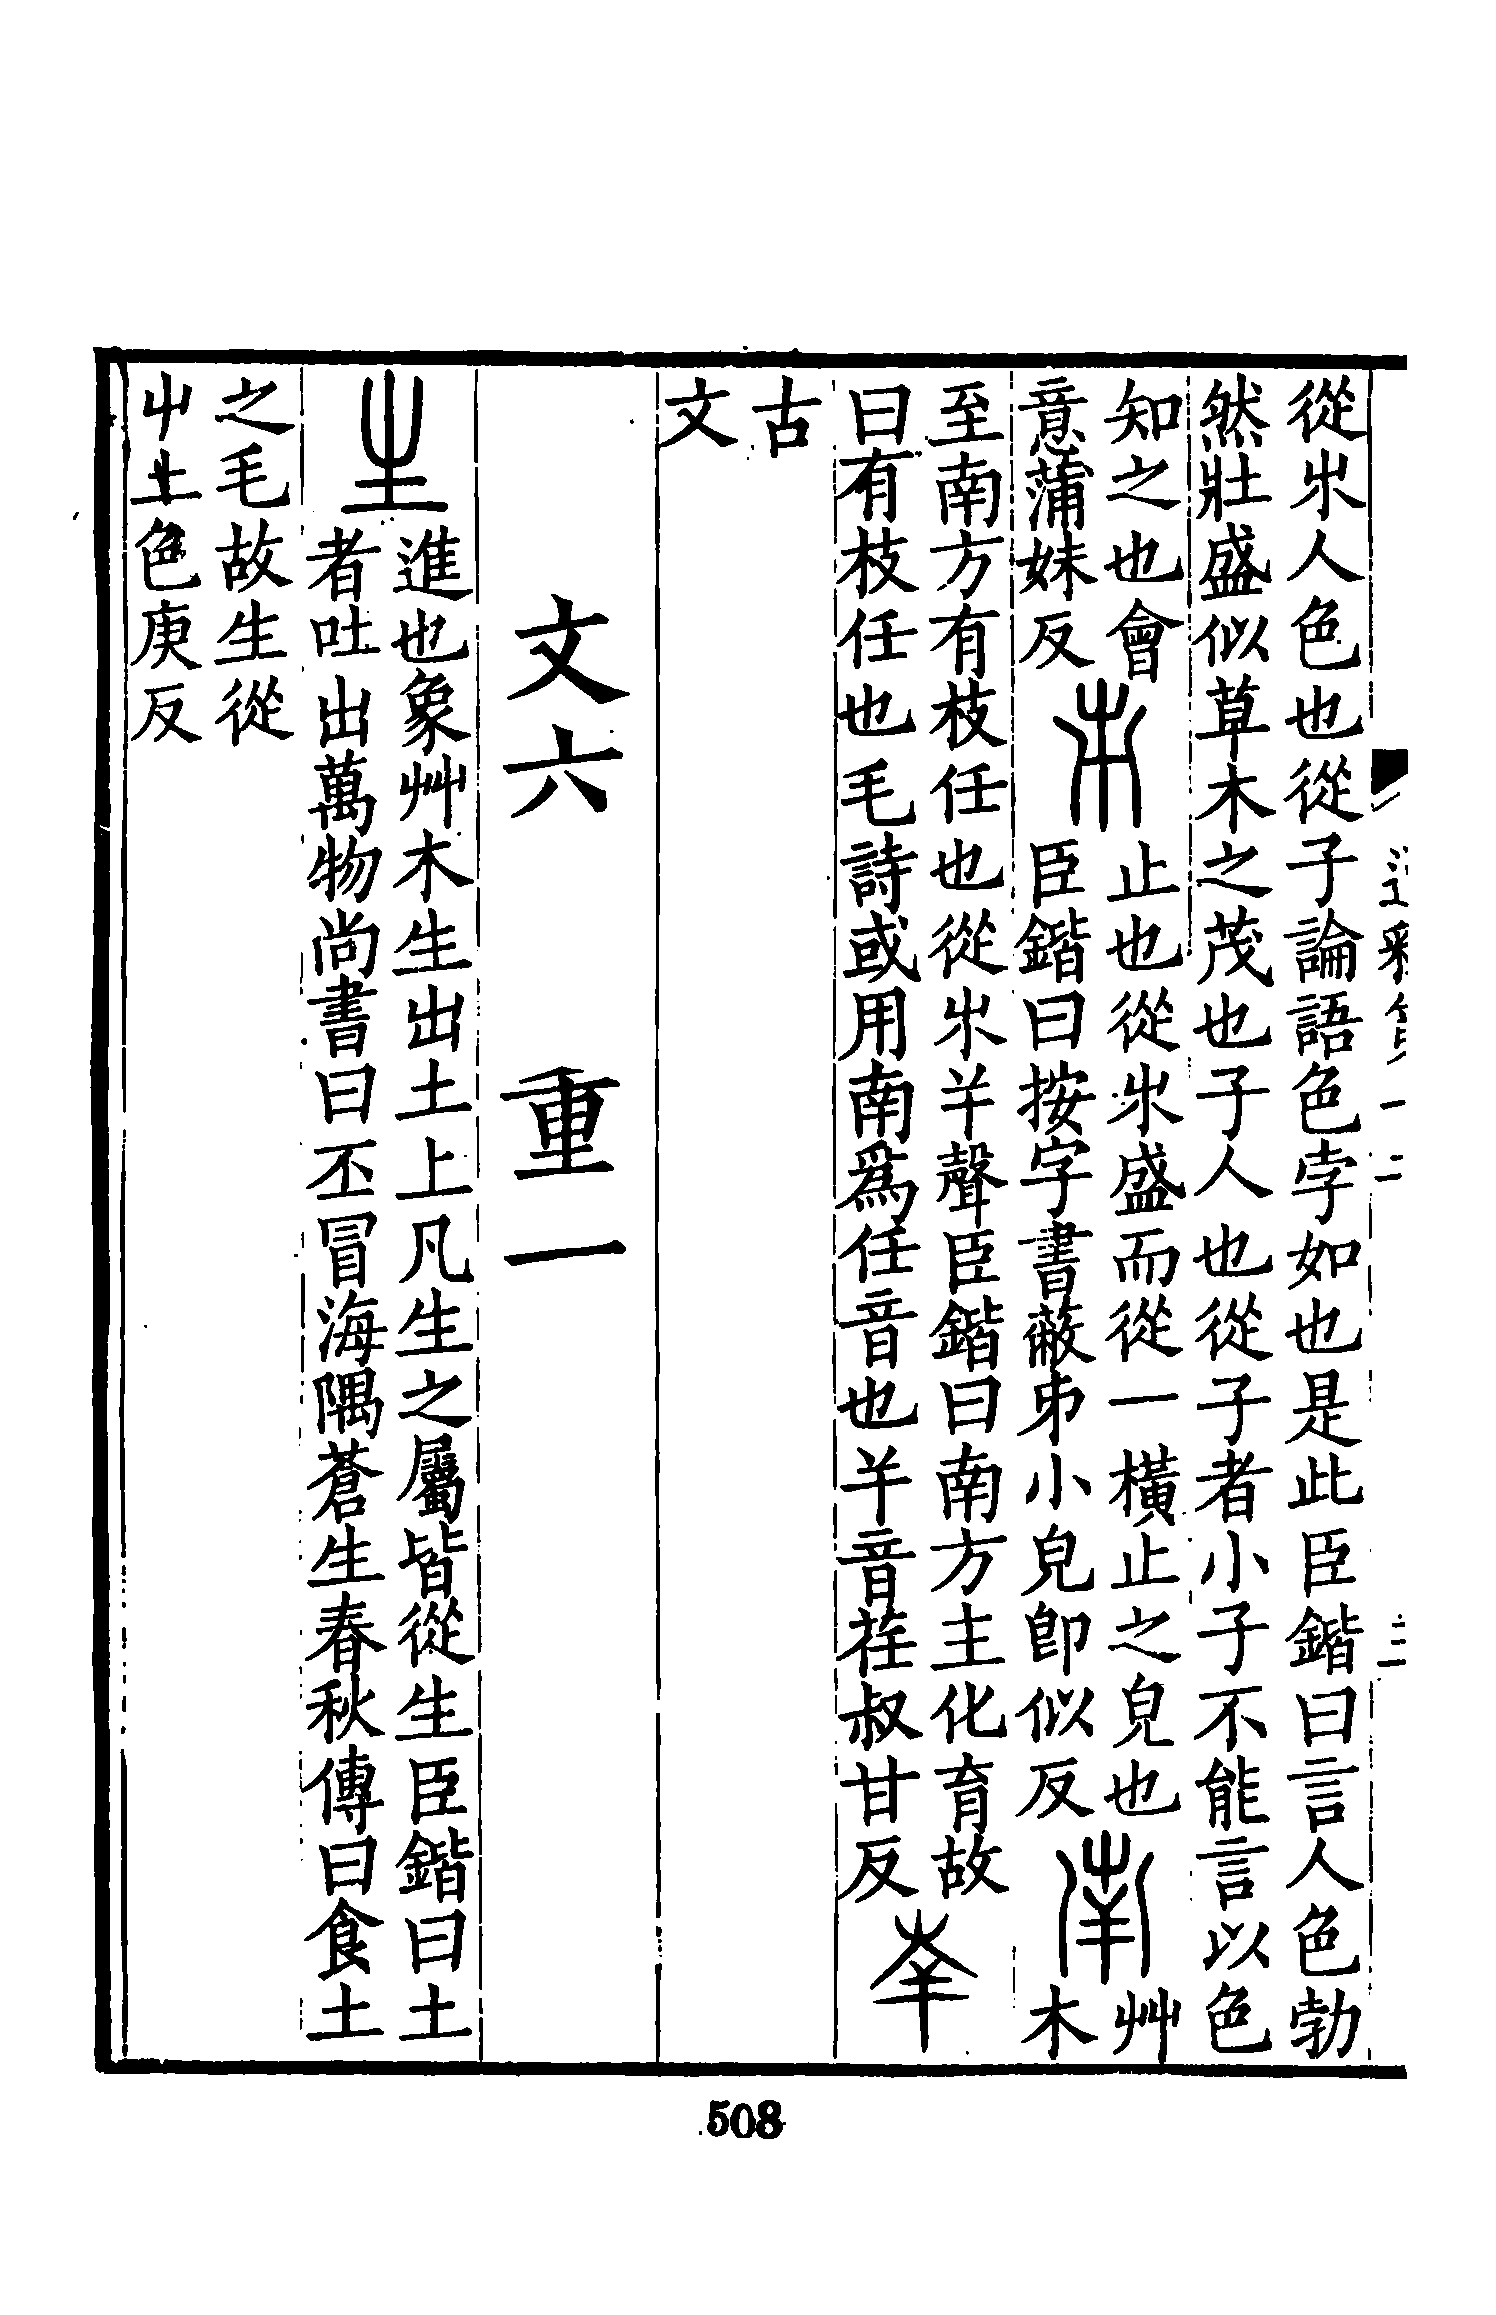 從𣎵人色也從子論語色孛如也是此臣鍇曰言人色勃
然壯盛似草木之茂也子人也從子者小子不能言以色
知之也會
意蒲妹反
𠂔
止也從𣎵盛而從一橫止之皃也
臣鍇曰按字書蔽巿小皃卽似反
南
艸
木
至南方有枝任也從𣎵𢆉聲臣鍇曰南方主化育故
曰有枝任也毛詩或用南爲任音也𢆉音荏叔甘反
𡴖
古
文
文六 重一
生
進也象艸木生出土上凡生之屬皆從生臣鍇曰土
者吐出萬物尚書曰丕冒海隅蒼生春秋傳曰食土
之毛故生從
屮土色庚反
508